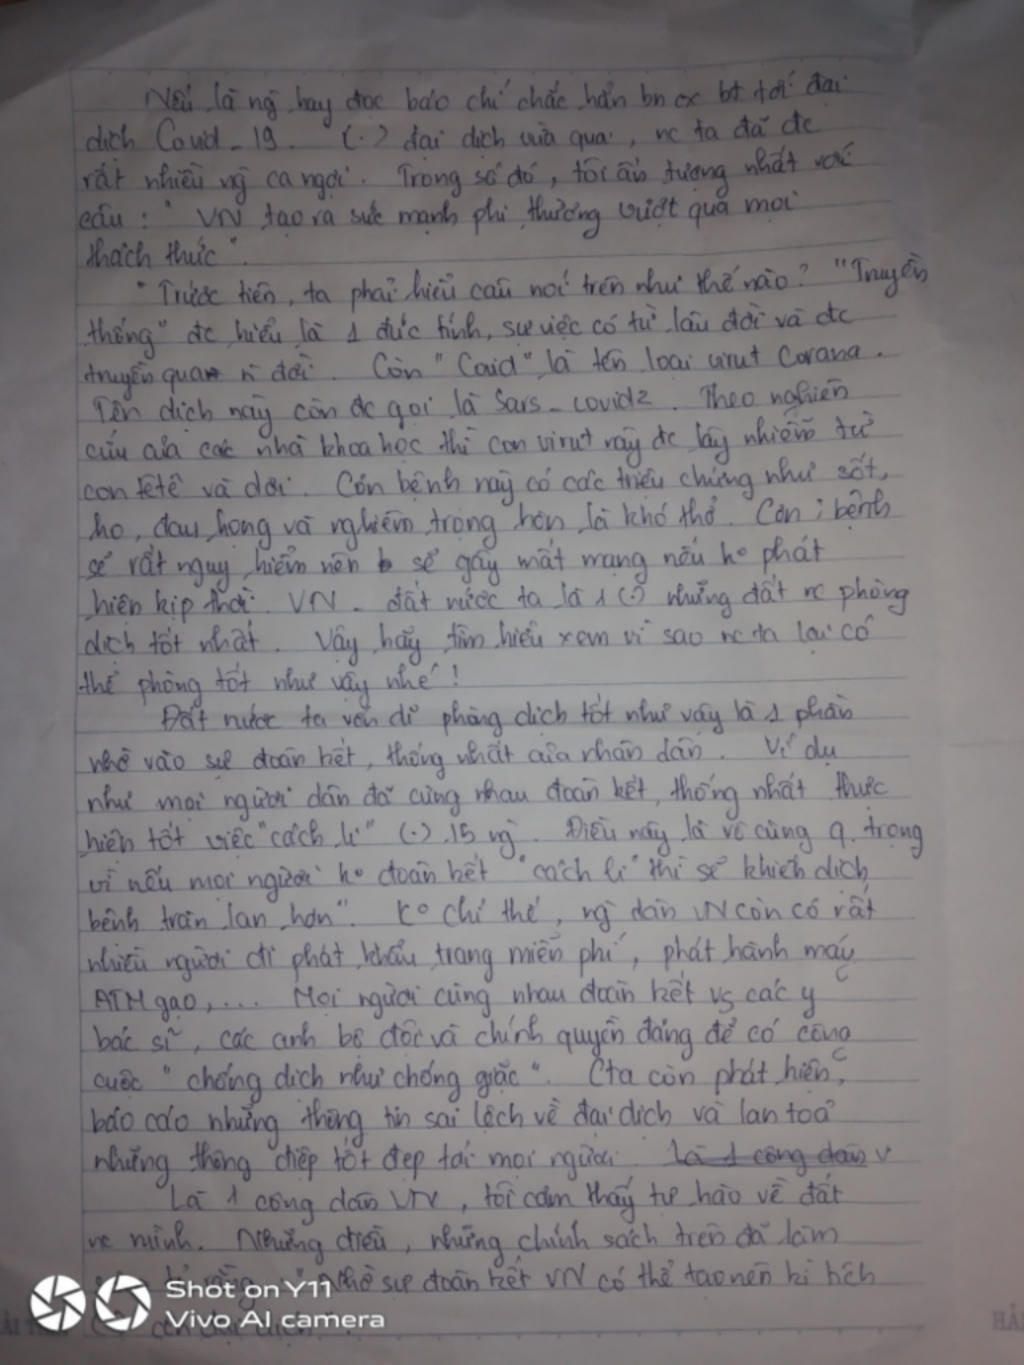 Nếu là ng hay đọc báo chí chắc hẳn bn cx bt tới đại
dịch Covid_19. (.) đại dịch vừa qua, nc ta đã đc
rất nhiều ng ca ngợi. Trong số đó, tôi ấn tượng nhất với
câu: " VN tạo ra sức mạnh phi thường vượt qua mọi
thách thức".
"Trước tiên, ta phải hiểu câu nói trên như thế nào? "Truyền
thống" đc hiểu là 1 đức tính, sự việc có từ lâu đời và đc
truyền qua n đời. Còn "Covid" là tên loại virut Corana.
Tên dịch này còn đc gọi là Sars_covid2. Theo nghiên
cứu của các nhà khoa học thì con virut này đc lây nhiễm từ
con têtê và dơi. Cơn bệnh này có các triệu chứng như sốt,
ho, đau họng và nghiêm trọng hơn là khó thở. Căn bệnh
sẽ rất nguy hiểm nên sẽ gây mất mạng nếu ko phát
hiện kịp thời. VN - đất nước ta là 1 (.) những đất nc phòng
dịch tốt nhất. Vậy hãy tìm hiểu xem vì sao nc ta lại có
thể phòng tốt như vậy nhé!
Đất nước ta vốn dĩ phòng dịch tốt như vậy là 1 phần
nhờ vào sự đoàn kết, thống nhất của nhân dân. Ví dụ
như mọi người dân đã cùng nhau đoàn kết, thống nhất thực
hiện tốt việc "cách li" (.) 15 ng. Điều này là vô cùng q. trọng
vì nếu mọi người ko đoàn kết "cách li" thì sẽ khiến dịch
bệnh tràn lan hơn". Ko chỉ thế, ng dân VN còn có rất
nhiều người đi phát khẩu trang miễn phí, phát hành máy
ATM gạo,.... Mọi người cùng nhau đoàn kết vs các y
bác sĩ, các anh bộ đội và chính quyền đảng để có công
cuộc " chống dịch như chống giặc". Cta còn phát hiện,
báo cáo những thông tin sai lệch về đại dịch và lan toả
những thông điệp tốt đẹp tới mọi người. Là 1 công dân V
Là 1 công dân VN, tôi cảm thấy tự hào về đất
nc mình. Những điều, những chính sách trên đã làm
nhờ sự đoàn kết VN có thể tạo nên kì tích
Shot on Y11
Vivo AI camera